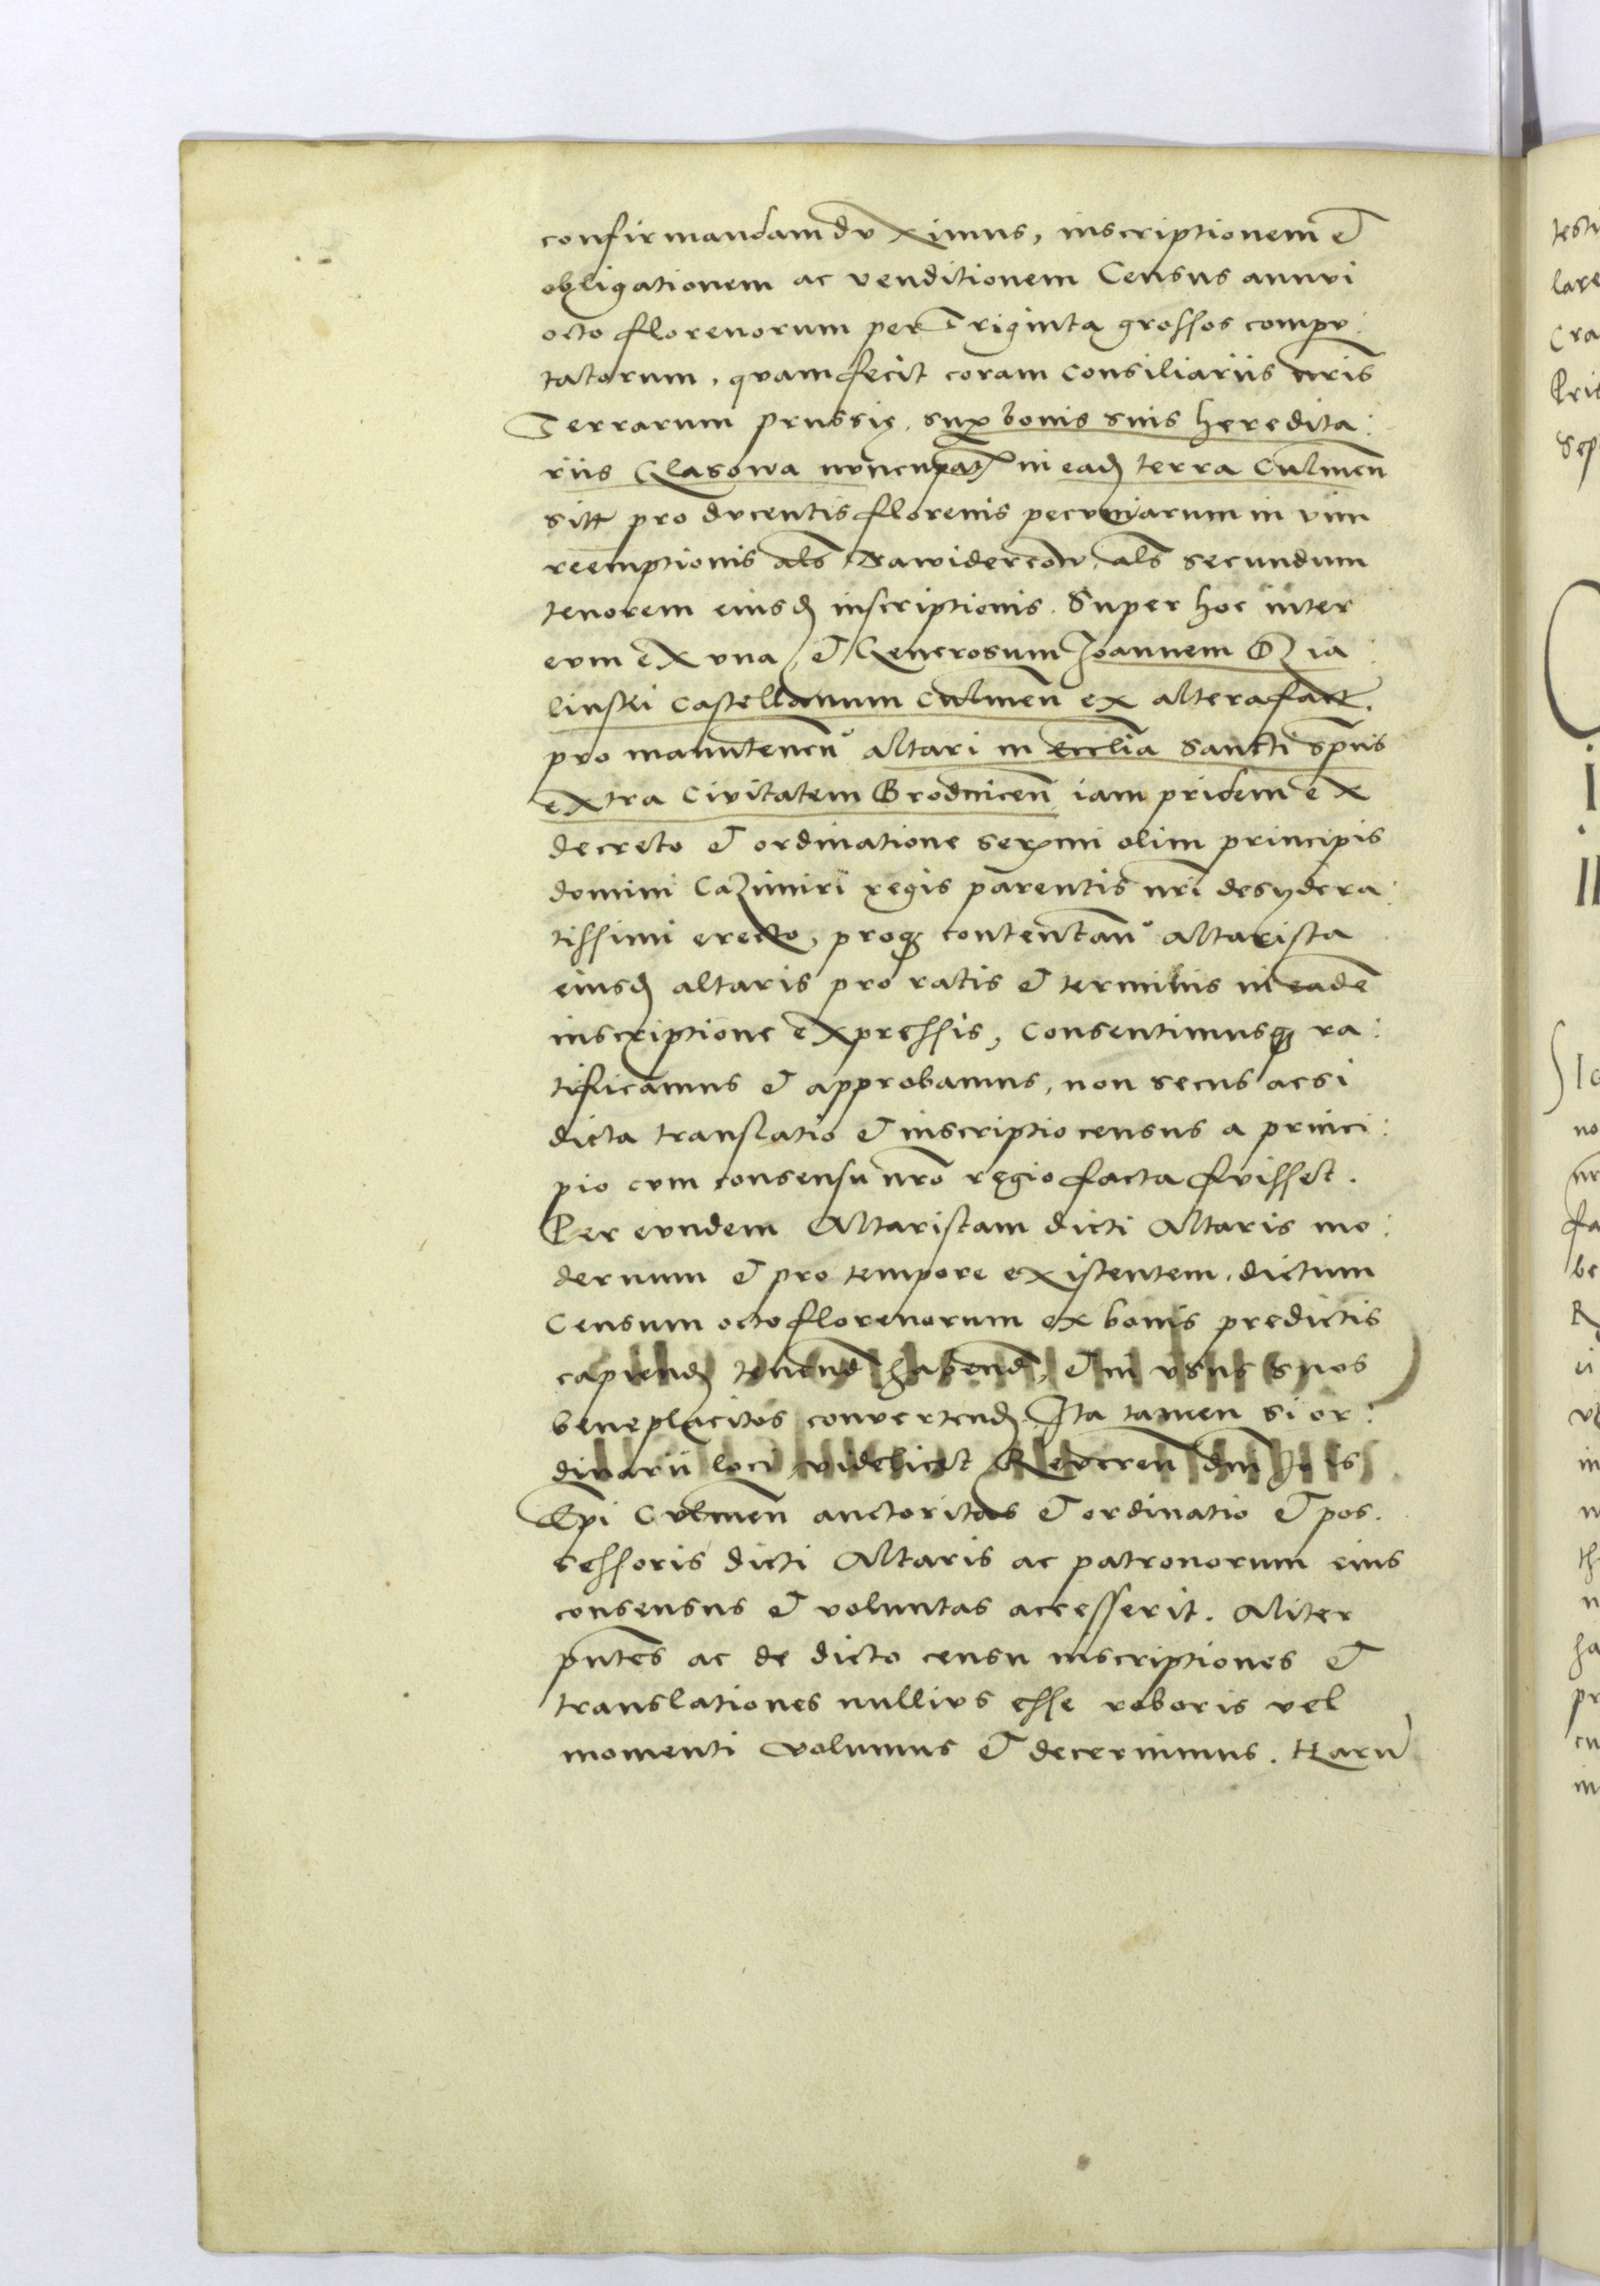 confirmandam duximus, inscriptionem et
obligationem ac venditionem Census annui
octo florenorum per Triginta grossos compu:
tatorum, quam fecit coram Consiliariis nris
Terrarum prussię, sup bonis suis heredita:
riis Glasowa nuncupat in ead terra Culmen
sitt pro ducentis florenis pecuniarum in vim
reemptionis als als secundum
tenorem eiusd inscriptionis. Super hoc inter
eum ex una, et Generosum Joannem Dzia:
linski Castellanum Culmen ex altera fact.
pro manutenen altari in Ecclia Sancti Spus
extra Civitatem Brodnicen iam pridem ex
decreto et ordinatione serxmi olim principis
domini Cazimiri regis parentis nri desydera:
tissimi erecto, proq contentan altarista
eiusd altaris pro ratis et terminis in eade
inscriptione expressis, Consentimusq ra:
tificamus et approbamus, non secus acsi
dicta translatio et inscriptio census a princi:
pio cum consensu nro regio facta fuisset.
Per eundem Altaristam dicti Altaris mo:
dernum et pro tempore existentem, dictum
Censum octo florenorum ex bonis predictis
capiend tenend habend, et in usus suos
beneplacitos convertend. Ita tamen si or:
dinarii loci videlicet Reveren dni Jo is
Epi Culmen auctoritas et ordinatio et pos.
sessoris dicti Altaris ac patronorum eius
consensus et voluntas accesserit. Aliter
pntes ac de dicto censu inscriptiones et
translationes nullius esse roboris vel
momenti volumus et decernimus. Haru